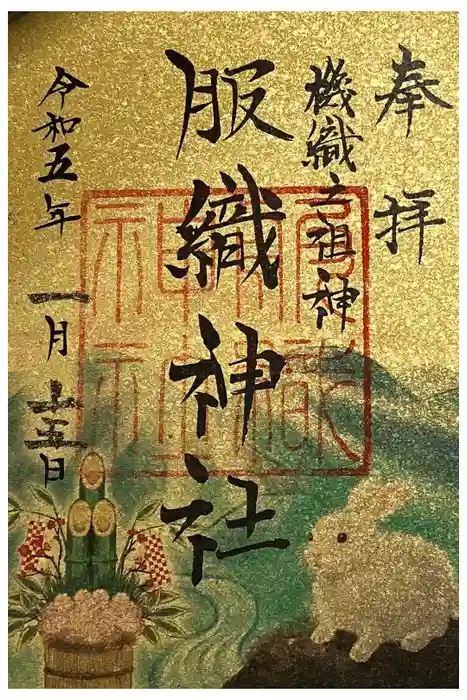 奉拝
機織之祖神
服織神社
令和五年一月十五日